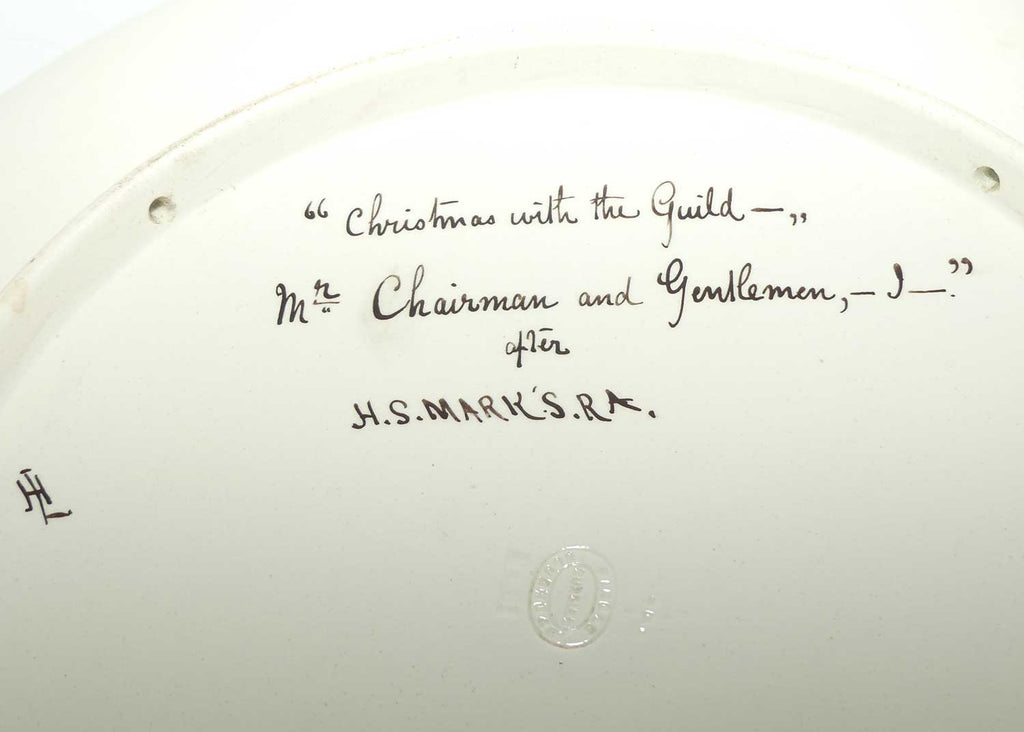 “ Christmas with the Guild — „
Mr Chairman and Gentlemen, — I —.”
after
H.S. MARK'S. RA.
HL